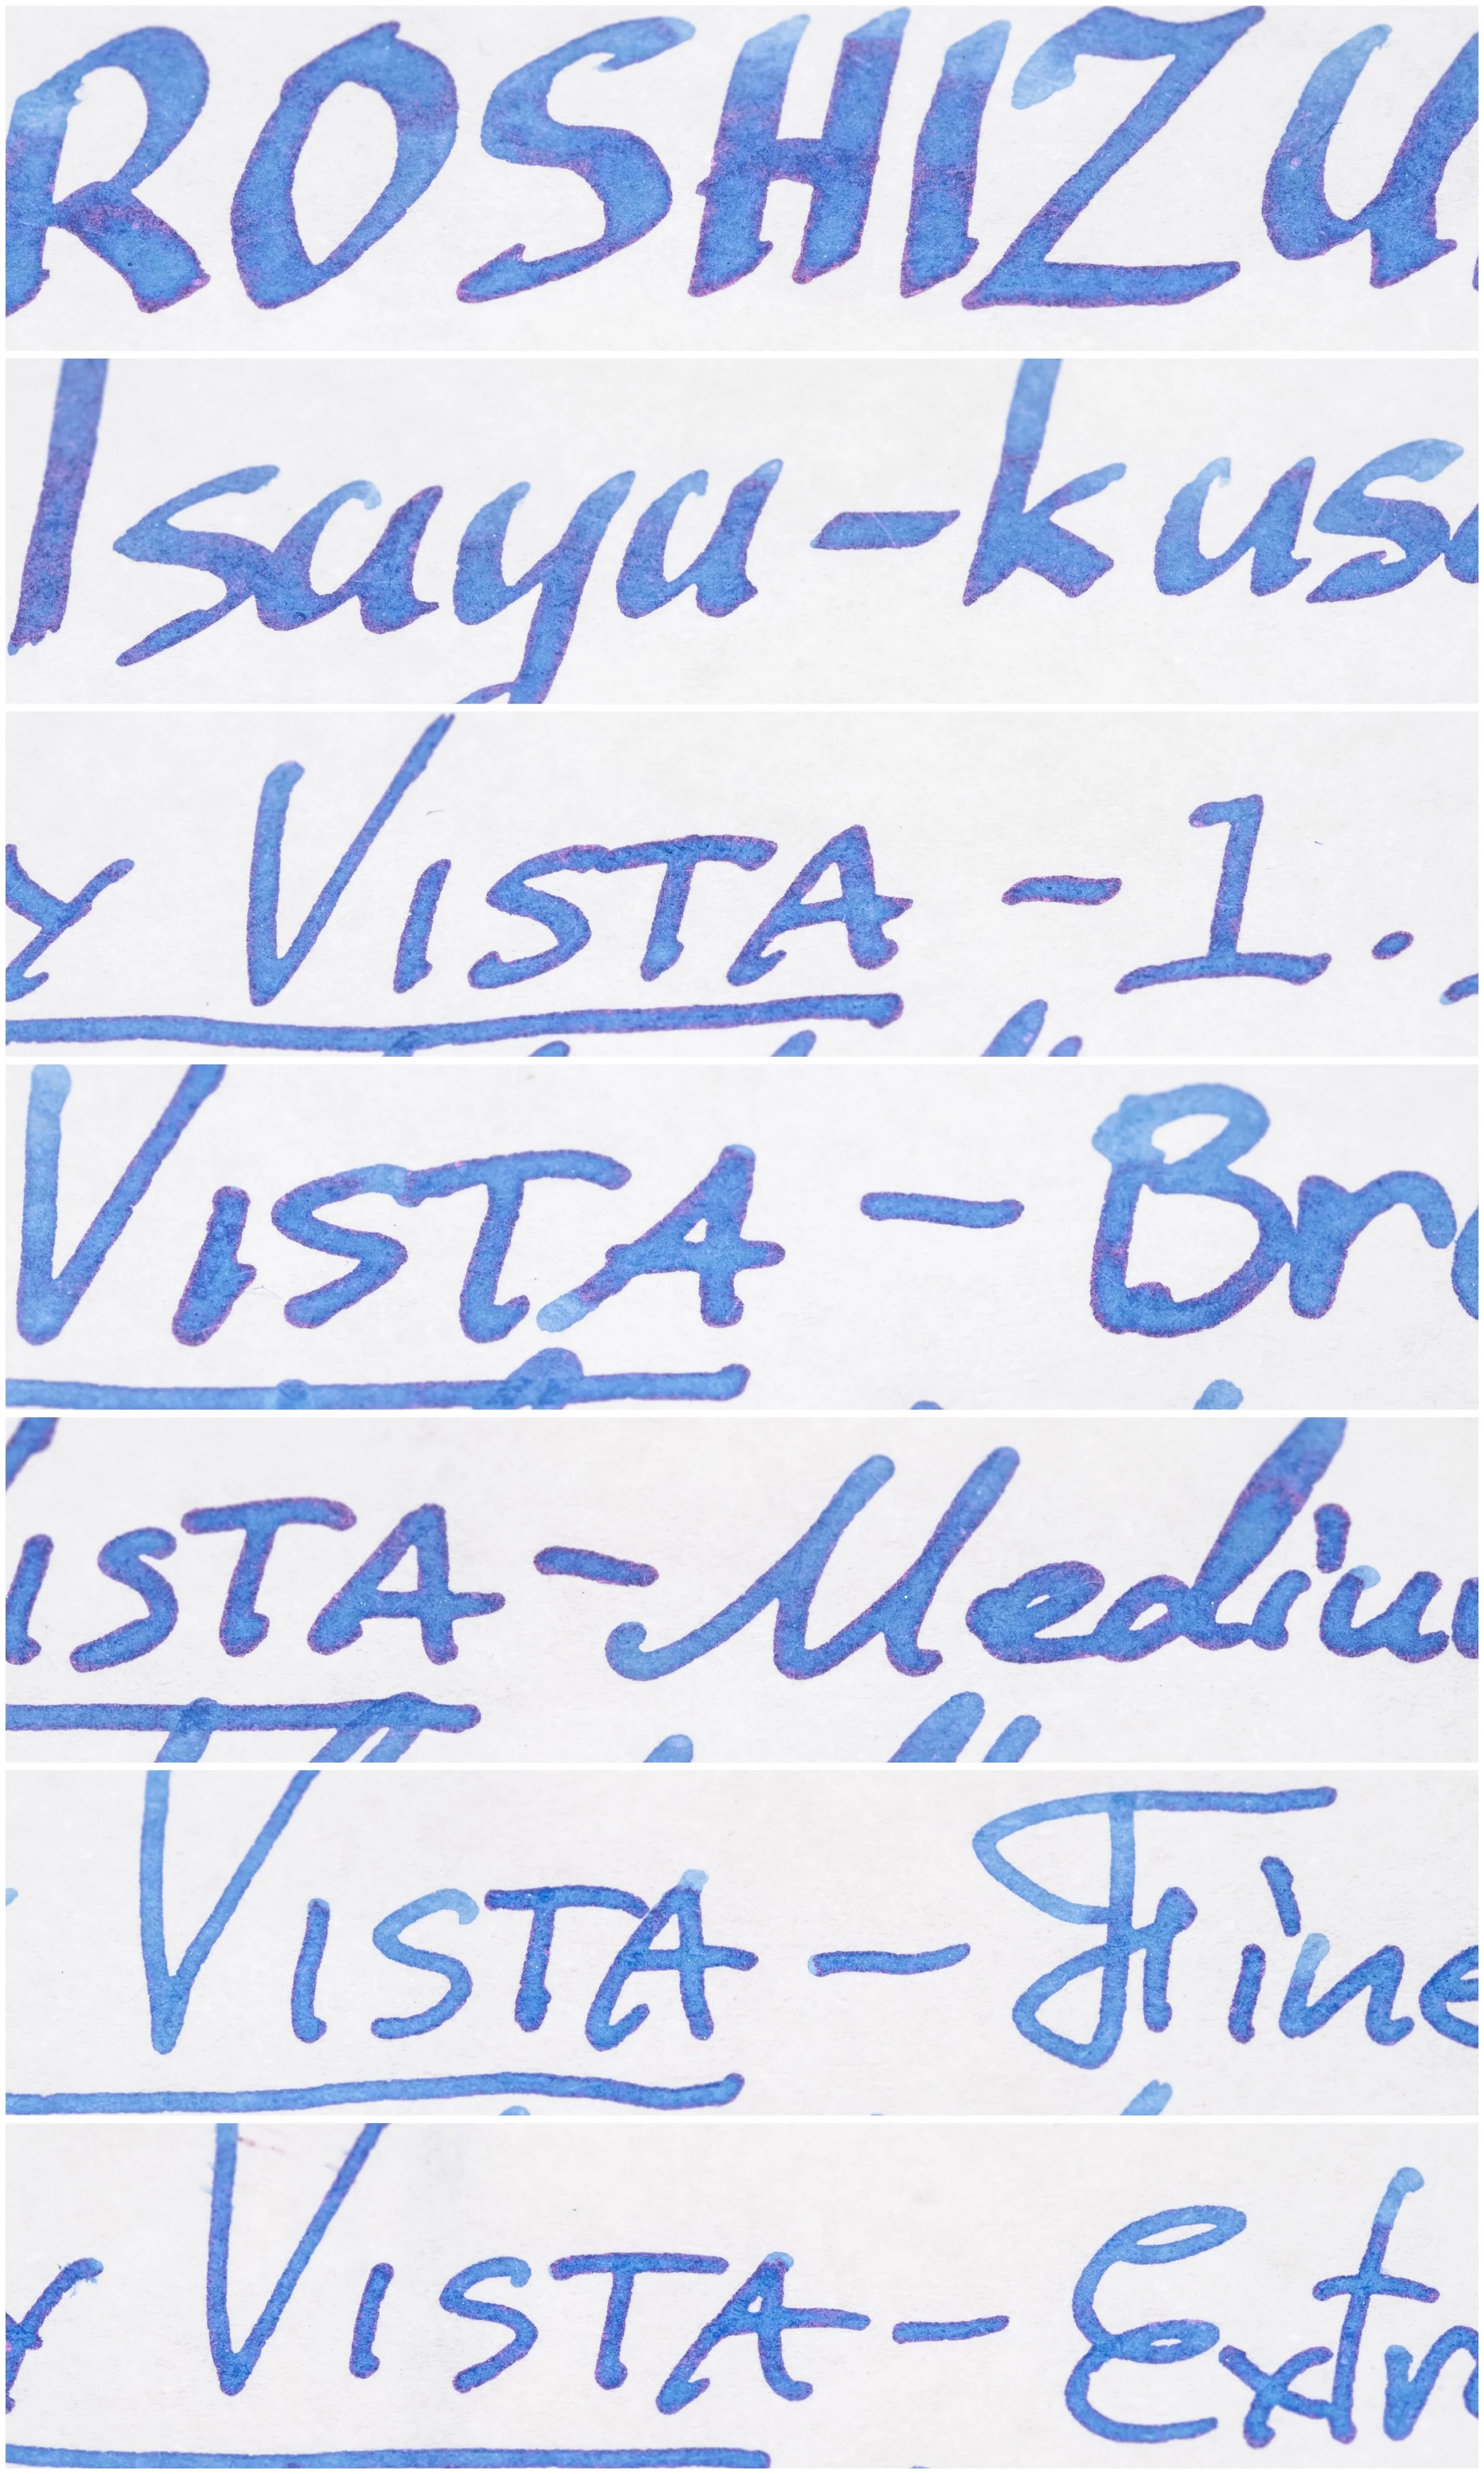 ROSHIZU
Isayu-kus
y VISTA - 1.
VISTA - Bro
ISTA - Mediu
VISTA - Fine
y VISTA - Extr